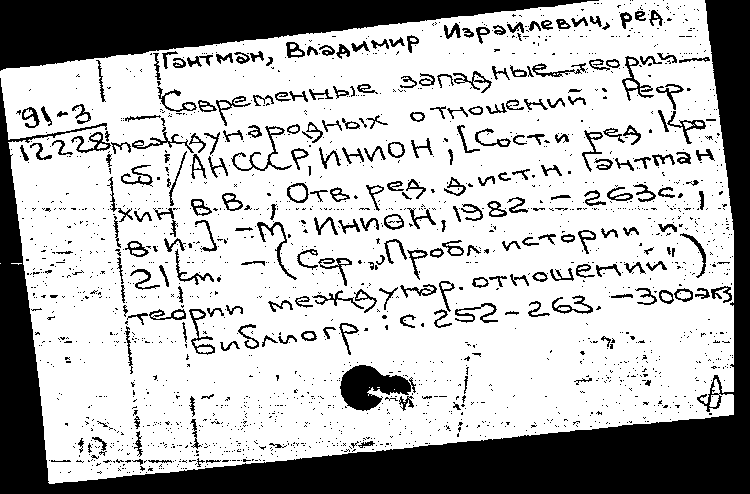 Гантман, Владимир Израилевич, ред.
91-3
12228
Современные западные теории
международных отношений: Реф.
сб. / АН СССР, ИНИОН; [Сост. и ред. Кро-
хин В.В.; Отв. ред. д.ист.н. Гантман
В.И.]. - М.: ИНИОН, 1982. - 263с.;
21 см. - (Сер. „Пробл. истории и
теории междунар. отношений")
Библиогр.: с.252-263. - 300экз
10